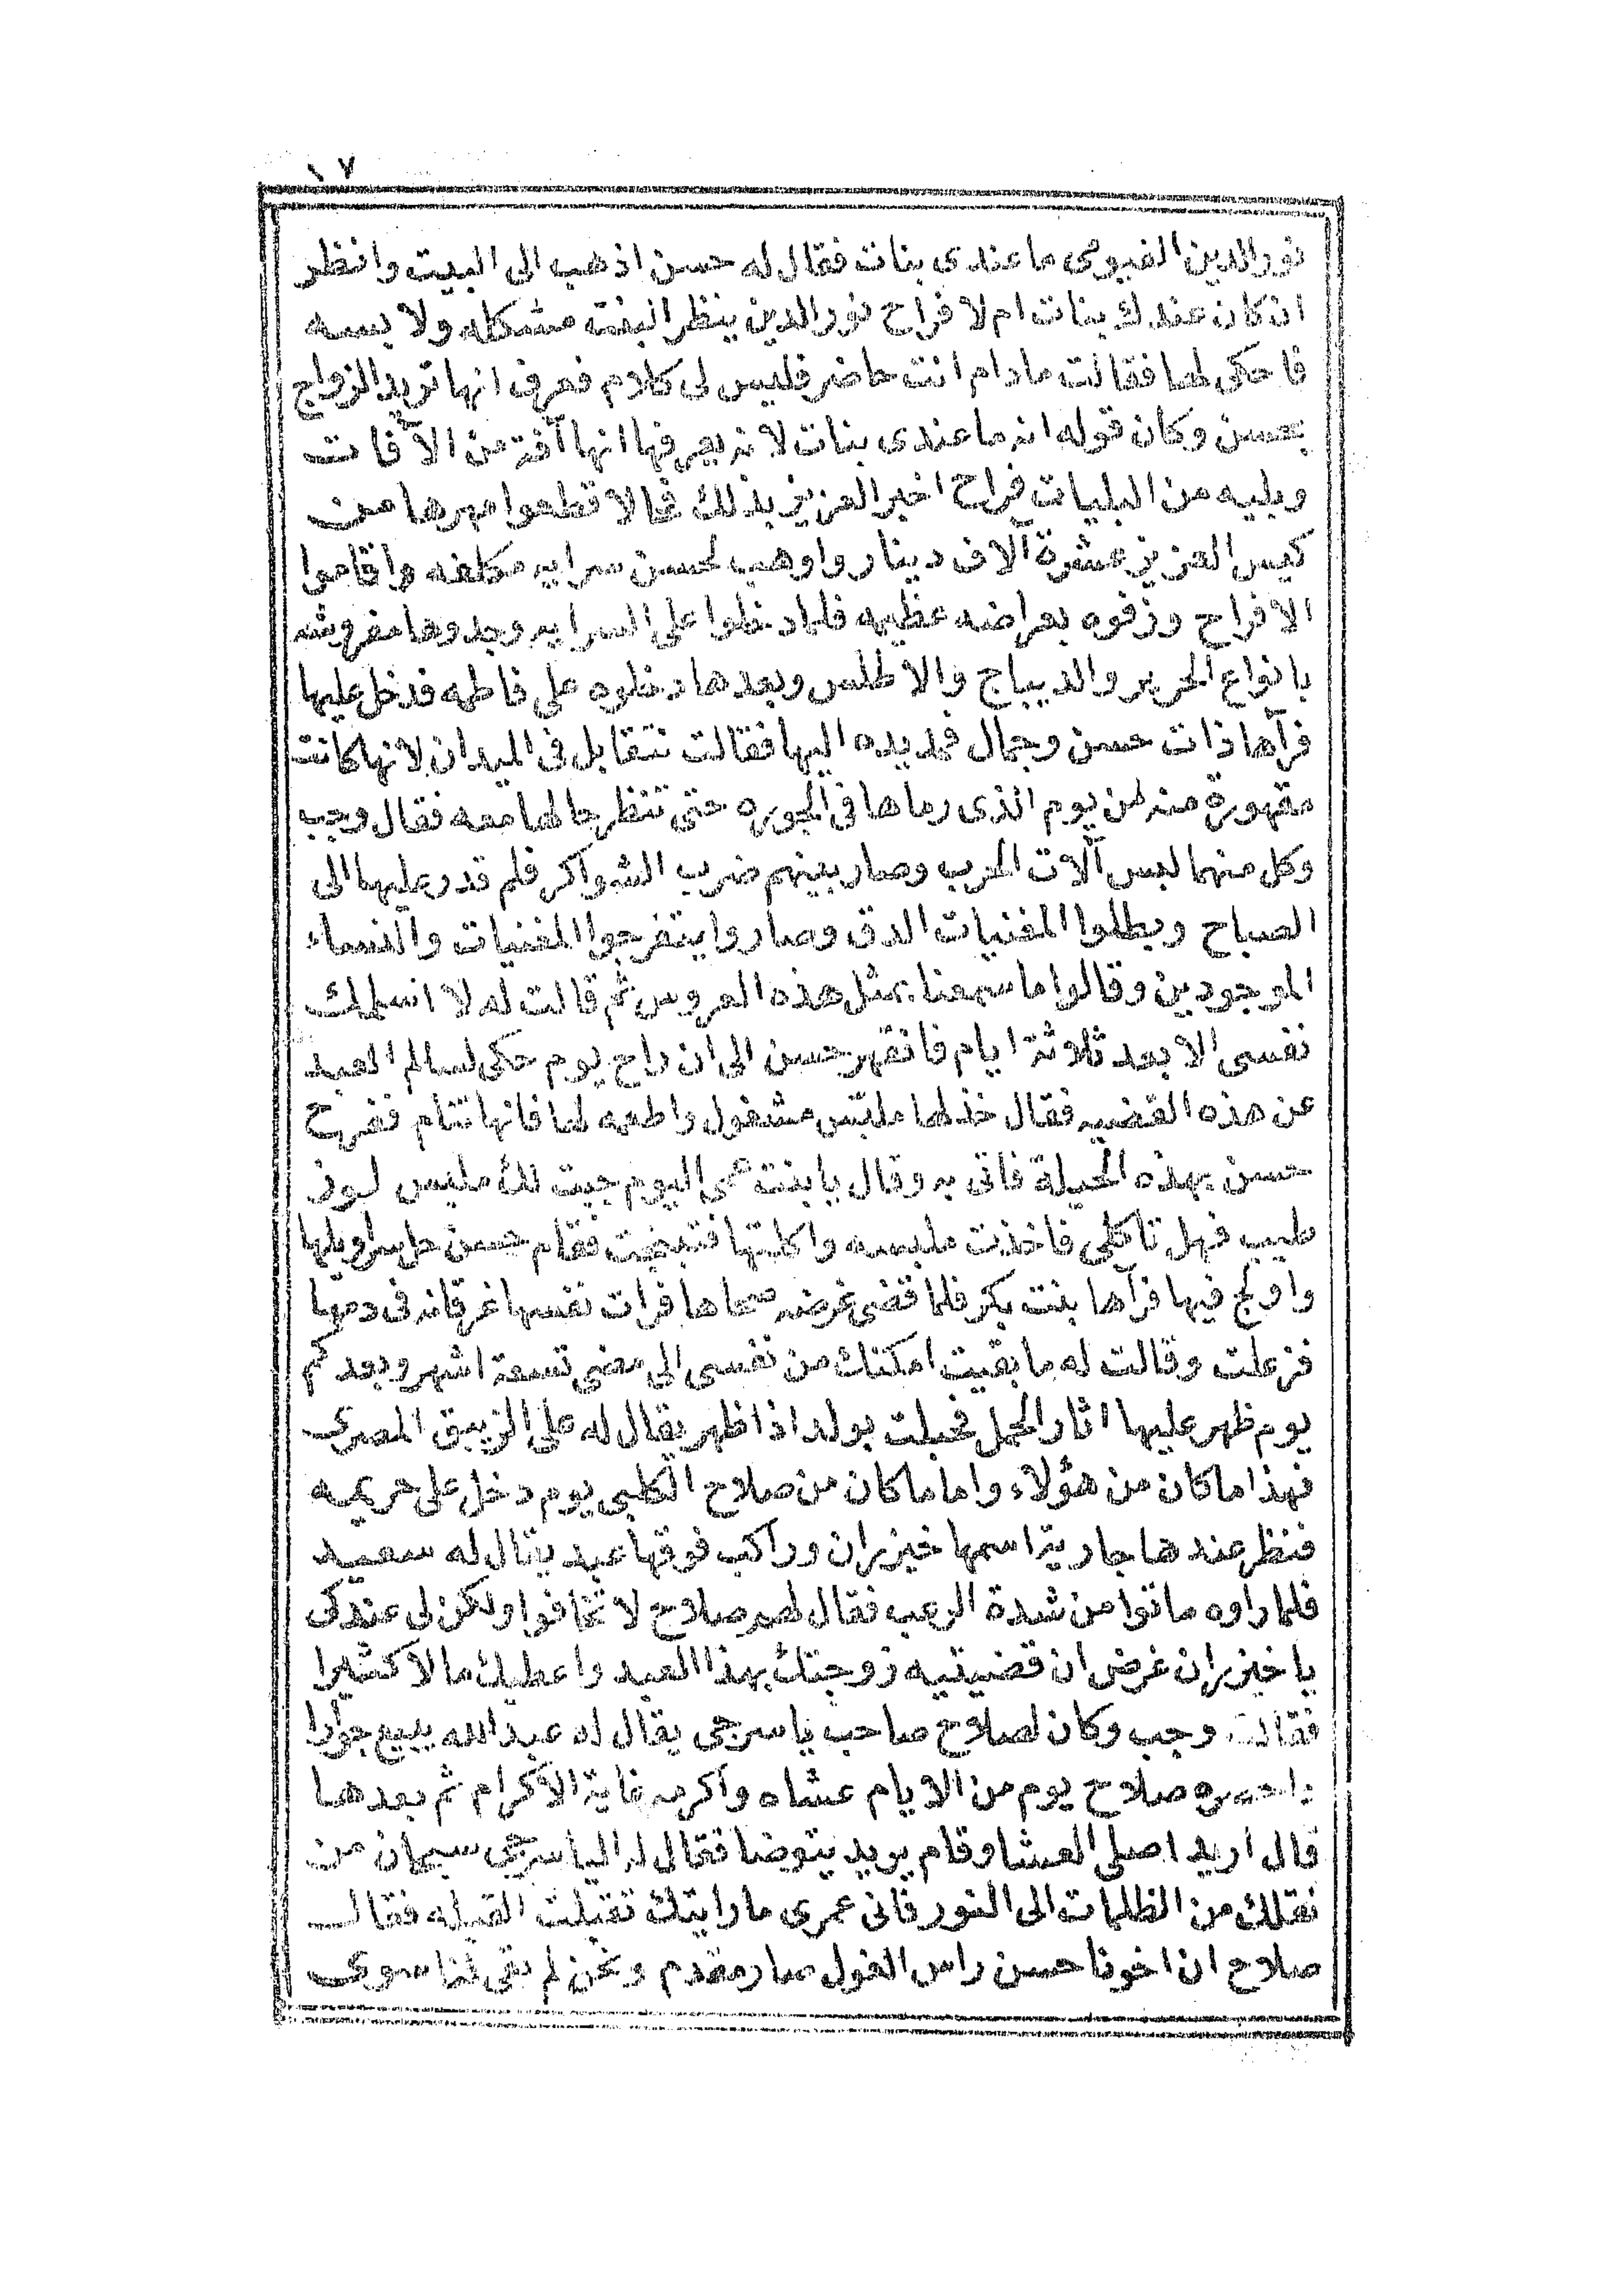 ١٧
نور الدين الفيومى ما عندى بنات فقال له حسن اذهب الى البيت وانظر
ان كان عندك بنات ام لا فراح نور الدين ينظر ابنته مشكله ولابسه
فاحكى لها فقالت مادام انت حاضر فليس لى كلام فعرف انها تريد الزواج
بحسن وكان قوله انه ما عندى بنات لانه يعرفها انها آفة من الآفات
وبليه من البليات فراح اخبر العزيز بذلك فحالا قطعوا مهرها من
كيس العزيز عشرة آلاف دينار واوهب لحسن سرايه مكلفه واقاموا
الافراح وزفوه بعراضه عظيمه فلما دخلوا على السرايه وجدوها مفروشه
بانواع الحرير والديباج والاطلس وبعدها دخلوه على فاطمه فدخل عليها
فرآها ذات حسن وجمال فمد يده اليها فقالت نتقابل فى الميدان لانها كانت
مقهورة منه من يوم الذى رماها فى الجوره حتى تنظر حالها معه فقال وجب
وكل منهما لبس آلات الحرب وصار بينهم ضرب الشواكر فلم قدر عليها الى
الصباح وبطلوا المغنيات الدق وصاروا يتفرجوا المغنيات والنساء
الموجودين وقالوا ما سمعنا بمثل هذه العروس ثم قالت له لا اسلمك
نفسى الا بعد ثلاثة ايام فانقهر حسن الى ان راح يوم حكى لسالم العبد
عن هذه القضيه فقال خذ لها ملبّس مشغول واطعمه لها فانها تنام ففرح
حسن بهذه الحيلة فاتى به وقال يا بنت عمى اليوم جيت لك ملبس لوز
طيب فهل تاكلى فاخذت ملبسه واكلتها فتبنجت فقام حسن حل سراويلها
واولج فيها فرآها بنت بكر فلما قضى غرضه صحاها فرات نفسها غرقانه فى دمها
فزعلت وقالت له ما بقيت امكنك من نفسى الى مضى تسعة اشهر وبعد كم
يوم ظهر عليها اثار الحمل فحبلت بولد اذا ظهر يقال له على الزيبق المصرى
فهذا ما كان من هؤلاء واما ما كان من صلاح الكلبى يوم دخل على حريمه
فنظر عندها جارية اسمها خيزران وراكب فوقها عبد يقال له سعيد
فلما راوه ماتوا من شدة الرعب فقال لهم صلاح لا تخافوا ولكن لى عندكى
يا خيزران غرض ان قضيتيه زوجتك بهذا العبد واعطيك مالا كثيرا
فقالت وجب وكان لصلاح صاحب ياسرجى يقال له عبد الله يبيع جوارا
صلاح يوم من الايام عشاه واكرمه غاية الاكرام ثم بعدها
قال اريد اصلى العشا وقام يريد يتوضا فقال له الياسرجى سبحان من
نقلك من الظلمات الى النور فانى عمرى ما رايتك تقبلت القبله فقال
صلاح ان اخونا حسن راس الغول صار مقدم ونحن لم بقى لنا سوى